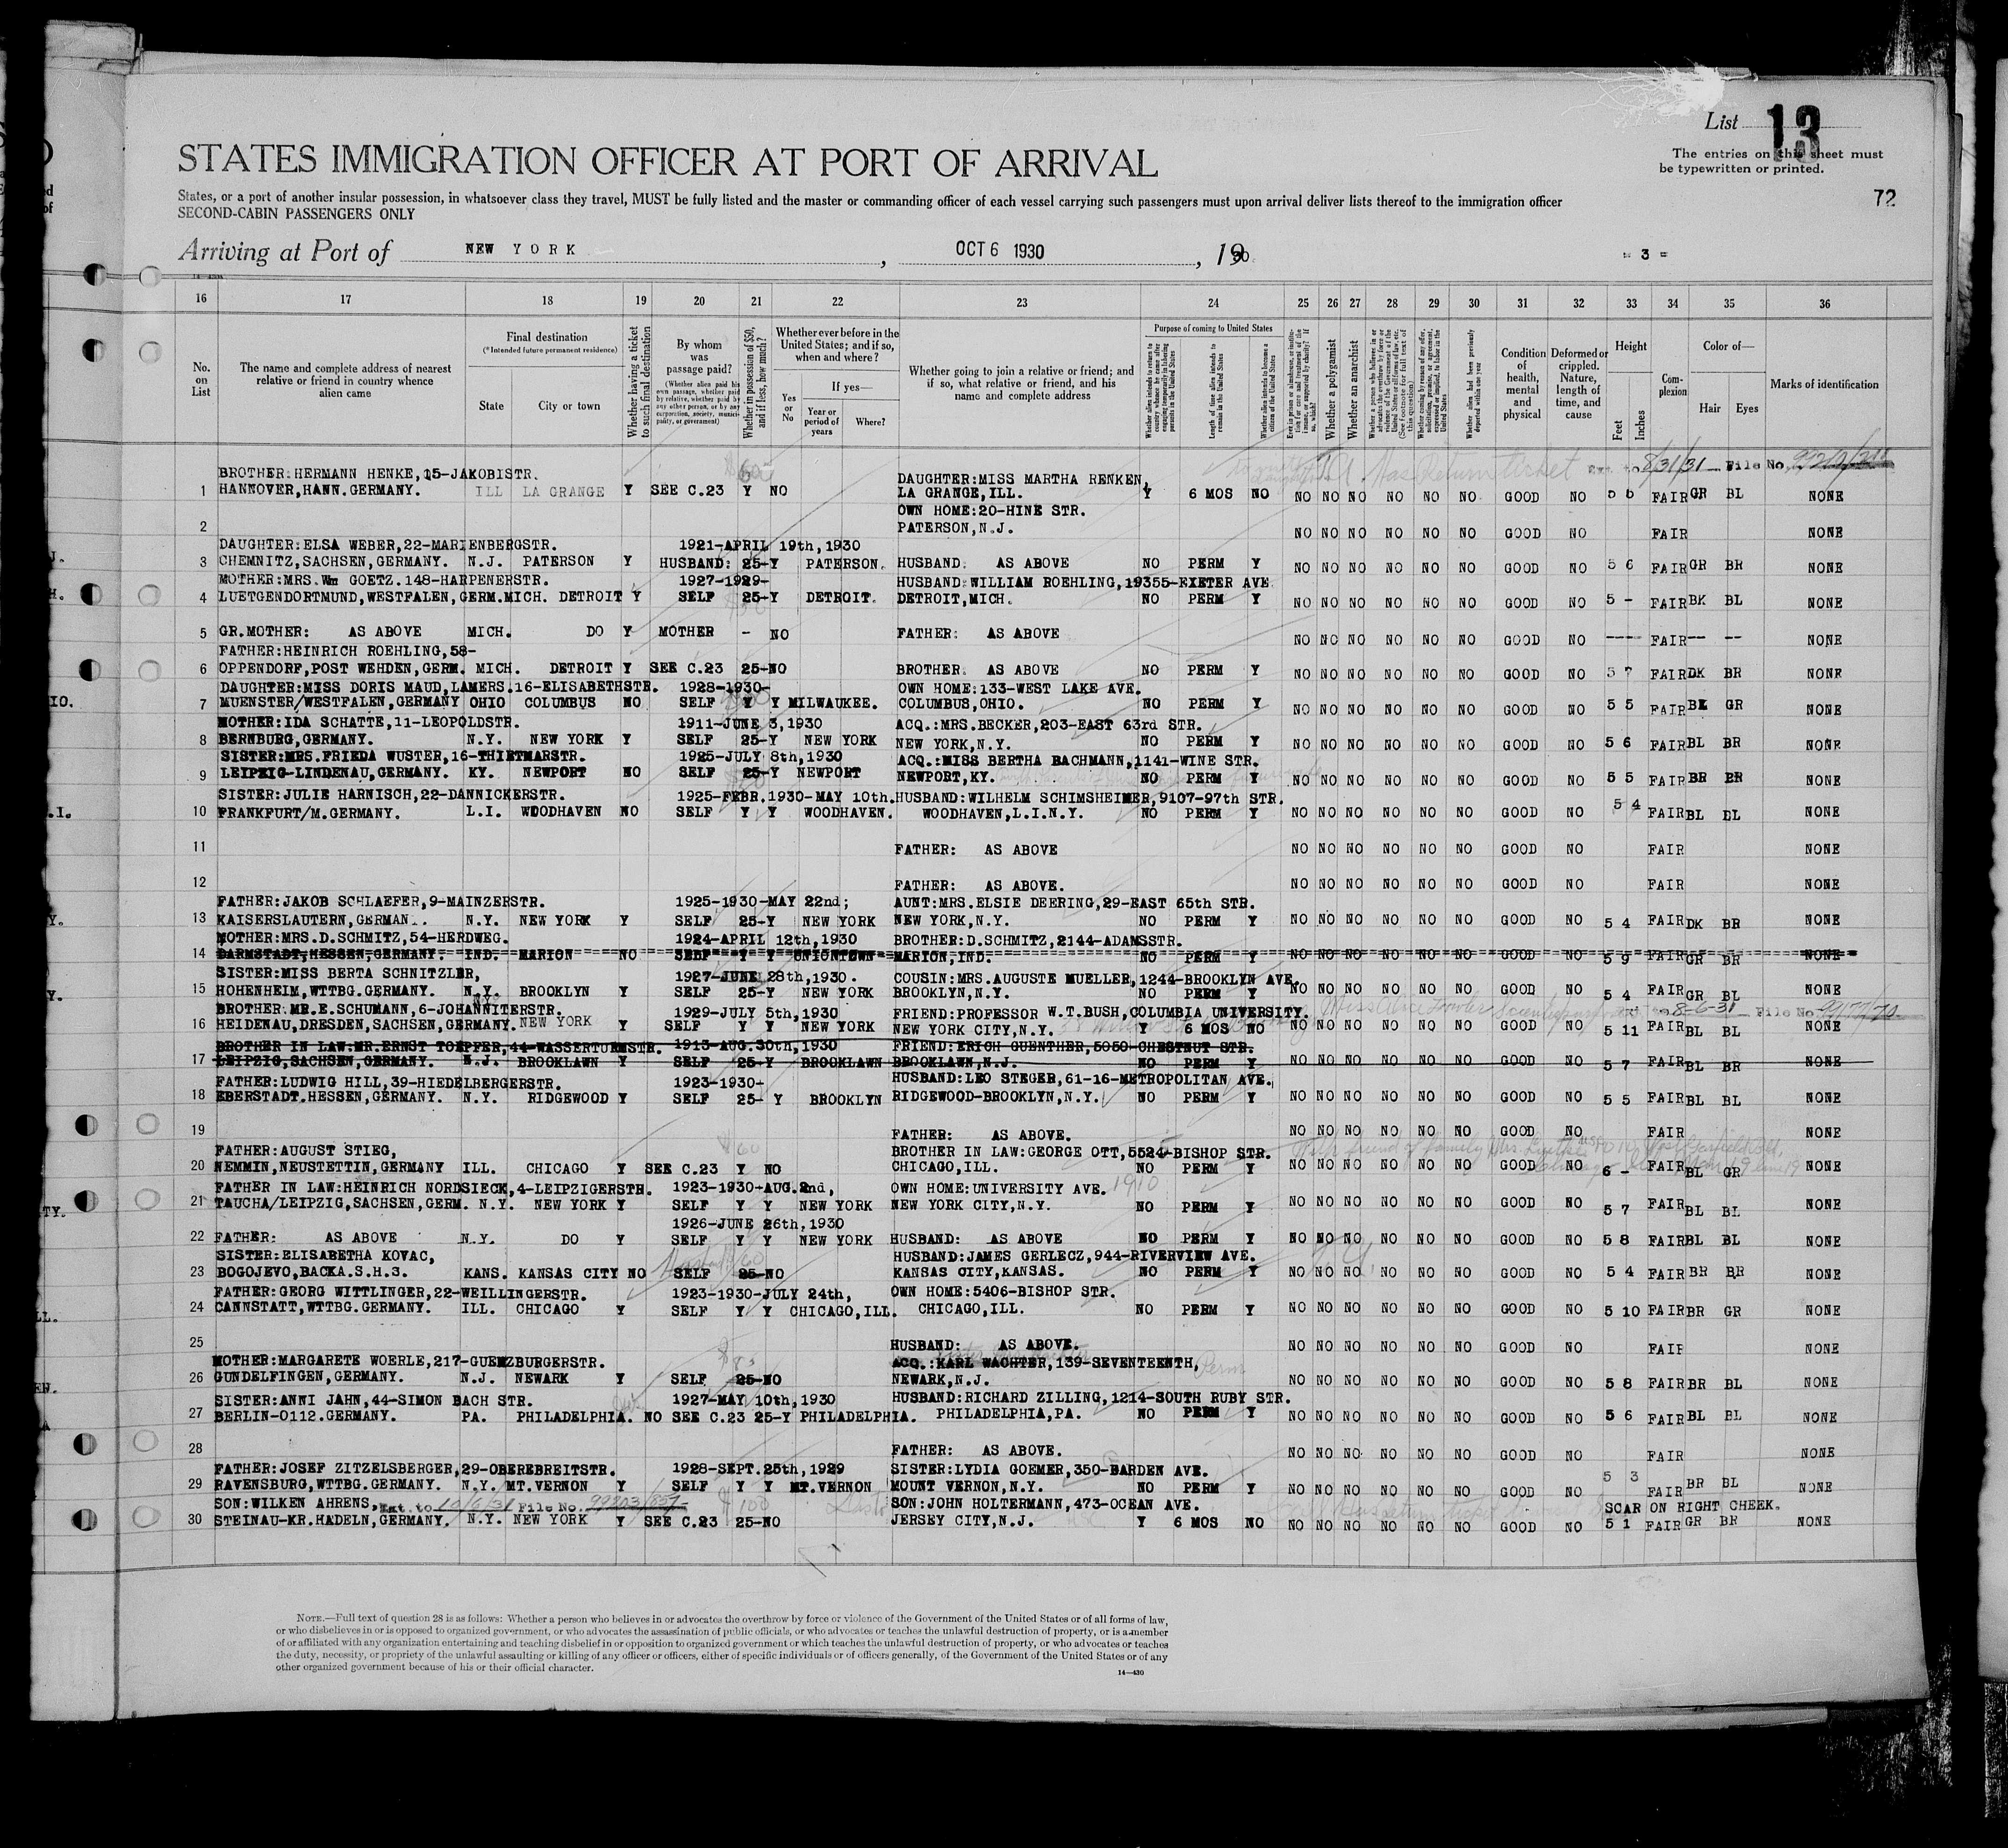 List 13
The entries on this sheet must
be typewritten or printed.
STATES IMMIGRATION OFFICER AT PORT OF ARRIVAL
72
States, or a port of another insular possession, in whatsoever class they travel, MUST be fully listed and the master or commanding officer of each vessel carrying such passengers must upon arrival deliver lists thereof to the immigration officer
SECOND-CABIN PASSENGERS ONLY
Arriving at Port of NEW YORK, OCT 6 1930, 1930
= 3 =
16 17 18 19 20 21 22 23 24 25 26 27 28 29 30 31 32 33 34 35 36
No. on List
The name and complete address of nearest relative or friend in country whence alien came
Final destination
(*Intended future permanent residence)
State City or town
Whether having a ticket to such final destination
By whom was passage paid?
(Whether alien paid his own passage, whether paid by relative, whether paid by any other person, or by any corporation, society, municipality, or government)
Whether in possession of $50, and if less, how much?
Whether ever before in the United States; and if so, when and where?
Yes or No
If yes—
Year or period of years
Where?
Whether going to join a relative or friend; and if so, what relative or friend, and his name and complete address
Purpose of coming to United States
Length of time alien intends to remain in the United States
Whether a polygamist
Whether an anarchist
Condition of health, mental and physical
Deformed or crippled. Nature, length of time, and cause
Height
Feet Inches
Complexion
Color of—
Hair Eyes
Marks of identification
BROTHER:HERMANN HENKE,15-JAKOBISTR. DAUGHTER:MISS MARTHA RENKEN, Has Return ticket 8/31/31 File No.
1 HANNOVER,HANN.GERMANY. ILL LA GRANGE Y SEE C.23 Y NO LA GRANGE,ILL. Y 6 MOS NO NO NO NO NO NO NO GOOD NO 5 6 FAIR GR BL NONE
OWN HOME:20-HINE STR.
2 PATERSON,N.J. NO NO NO NO NO NO GOOD NO FAIR NONE
DAUGHTER:ELSA WEBER,22-MARIENBERGSTR. 1921-APRIL 19th,1930
3 CHEMNITZ,SACHSEN,GERMANY. N.J. PATERSON Y HUSBAND: 25-Y PATERSON. HUSBAND: AS ABOVE NO PERM Y NO NO NO NO NO NO GOOD NO 5 6 FAIR GR BR NONE
MOTHER:MRS.Wm GOETZ.148-HARPENERSTR. 1927-1929- HUSBAND:WILLIAM ROEHLING,19355-EXETER AVE
4 LUETGENDORTMUND,WESTFALEN,GERM.MICH. DETROIT Y SELF 25-Y DETROIT. DETROIT,MICH. NO PERM Y NO NO NO NO NO NO GOOD NO 5 - FAIR BK BL NONE
5 GR.MOTHER: AS ABOVE MICH. DO Y MOTHER - NO FATHER: AS ABOVE NO NO NO NO NO NO GOOD NO ---- FAIR -- -- NONE
FATHER:HEINRICH ROEHLING,58-
6 OPPENDORF,POST WEHDEN,GERM. MICH. DETROIT Y SEE C.23 25-NO BROTHER: AS ABOVE NO PERM Y NO NO NO NO NO NO GOOD NO 5 7 FAIR DK BR NONE
DAUGHTER:MISS DORIS MAUD,LAMERS.16-ELISABETHSTR. 1928-1930- OWN HOME:133-WEST LAKE AVE.
7 MUENSTER/WESTFALEN,GERMANY OHIO COLUMBUS NO SELF Y Y MILWAUKEE. COLUMBUS,OHIO. NO PERM Y NO NO NO NO NO NO GOOD NO 5 5 FAIR GR NONE
MOTHER:IDA SCHATTE,11-LEOPOLDSTR. 1911-JUNE 3,1930 ACQ.:MRS.BECKER,203-EAST 63rd STR.
8 BERNBURG,GERMANY. N.Y. NEW YORK Y SELF 25-Y NEW YORK NEW YORK,N.Y. NO PERM Y NO NO NO NO NO NO GOOD NO 5 6 FAIR BL BR NONE
SISTER:MRS.FRIEDA WUSTER,16-THIETMARSTR. 1925-JULY 8th,1930 ACQ.:MISS BERTHA BACHMANN,1141-WINE STR.
9 LEIPZIG-LINDENAU,GERMANY. KY. NEWPORT NO SELF 25-Y NEWPORT NEWPORT,KY. NO PERM Y NO NO NO NO NO NO GOOD NO 5 5 FAIR BR BR NONE
SISTER:JULIE HARNISCH,22-DANNICKERSTR. 1925-FEBR.1930-MAY 10th. HUSBAND:WILHELM SCHIMSHEIMER,9107-97th STR.
10 FRANKFURT/M.GERMANY. L.I. WOODHAVEN NO SELF Y Y WOODHAVEN. WOODHAVEN,L.I.N.Y. NO PERM Y NO NO NO NO NO NO GOOD NO 5 4 FAIR BL BL NONE
11 FATHER: AS ABOVE NO NO NO NO NO NO GOOD NO FAIR NONE
12 FATHER: AS ABOVE. NO NO NO NO NO NO GOOD NO FAIR NONE
FATHER:JAKOB SCHLAEFER,9-MAINZERSTR. 1925-1930-MAY 22nd; AUNT:MRS.ELSIE DEERING,29-EAST 65th STR.
13 KAISERSLAUTERN,GERMAN.. N.Y. NEW YORK Y SELF 25-Y NEW YORK NEW YORK,N.Y. NO PERM Y NO NO NO NO NO NO GOOD NO 5 4 FAIR DK BR NONE
MOTHER:MRS.D.SCHMITZ,54-HERDWEG. 1924-APRIL 12th,1930 BROTHER:D.SCHMITZ,2144-ADAMSSTR.
14 DARMSTADT,HESSEN,GERMANY. IND. MARION NO SELF Y Y UNIONTOWN MARION,IND. NO PERM Y NO NO NO NO NO NO GOOD NO 5 9 FAIR GR BR NONE
SISTER:MISS BERTA SCHNITZLER, 1927-JUNE 28th,1930. COUSIN:MRS.AUGUSTE MUELLER,1244-BROOKLYN AVE.
15 HOHENHEIM,WTTBG.GERMANY. N.Y. BROOKLYN Y SELF 25-Y NEW YORK BROOKLYN,N.Y. NO PERM Y NO NO NO NO NO NO GOOD NO 5 4 FAIR GR BL NONE
BROTHER:MR.E.SCHUMANN,6-JOHANNITERSTR. N.Y. 1929-JULY 5th,1930 FRIEND:PROFESSOR W.T.BUSH,COLUMBIA UNIVERSITY. Miss Alice 8-6-31 File No. 99177/70
16 HEIDENAU,DRESDEN,SACHSEN,GERMANY. NEW YORK Y SELF Y Y NEW YORK NEW YORK CITY,N.Y. Y 6 MOS NO NO NO NO NO NO NO GOOD NO 5 11 FAIR BL BL NONE
BROTHER IN LAW:MR.ERNST TOEPFER,44-WASSERTURMSTR. 1913-AUG.30th,1930 FRIEND:ERICH GUENTHER,5050-CHESTNUT STR.
17 LEIPZIG,SACHSEN,GERMANY. N.J. BROOKLAWN Y SELF 25-Y BROOKLAWN BROOKLAWN,N.J. NO PERM Y NO NO NO NO NO NO GOOD NO 5 7 FAIR BL BR NONE
FATHER:LUDWIG HILL,39-HIEDELBERGERSTR. 1923-1930- HUSBAND:LEO STEGER,61-16-METROPOLITAN AVE.
18 EBERSTADT.HESSEN,GERMANY. N.Y. RIDGEWOOD Y SELF 25- Y BROOKLYN RIDGEWOOD-BROOKLYN,N.Y. NO PERM Y NO NO NO NO NO NO GOOD NO 5 5 FAIR BL BL NONE
19 FATHER: AS ABOVE. NO NO NO NO NO NO GOOD NO FAIR NONE
FATHER:AUGUST STIEG, $60 BROTHER IN LAW:GEORGE OTT,5524-BISHOP STR. With friend of family
20 NEMMIN,NEUSTETTIN,GERMANY ILL. CHICAGO Y SEE C.23 Y NO CHICAGO,ILL. NO PERM Y NO NO NO NO NO NO GOOD NO 6 - FAIR BL GR NONE
FATHER IN LAW:HEINRICH NORDSIECK,4-LEIPZIGERSTR. 1923-1930-AUG.2nd, OWN HOME:UNIVERSITY AVE. 1910
21 TAUCHA/LEIPZIG,SACHSEN,GERM. N.Y. NEW YORK Y SELF Y Y NEW YORK NEW YORK CITY,N.Y. NO PERM Y NO NO NO NO NO NO GOOD NO 5 7 FAIR BL BL NONE
1926-JUNE 26th,1930
22 FATHER: AS ABOVE N.Y. DO Y SELF Y Y NEW YORK HUSBAND: AS ABOVE NO PERM Y NO NO NO NO NO NO GOOD NO 5 8 FAIR BL BL NONE
SISTER:ELISABETHA KOVAC, Husband 60 HUSBAND:JAMES GERLECZ,944-RIVERVIEW AVE.
23 BOGOJEVO,BACKA.S.H.S. KANS. KANSAS CITY NO SELF 25-NO KANSAS CITY,KANSAS. NO PERM Y NO NO NO NO NO NO GOOD NO 5 4 FAIR BR BR NONE
FATHER:GEORG WITTLINGER,22-WEILLINGERSTR. 1923-1930-JULY 24th, OWN HOME:5406-BISHOP STR.
24 CANNSTATT,WTTBG.GERMANY. ILL. CHICAGO Y SELF Y Y CHICAGO,ILL. CHICAGO,ILL. NO PERM Y NO NO NO NO NO NO GOOD NO 5 10 FAIR BR GR NONE
25 HUSBAND: AS ABOVE. NO NO NO NO NO NO GOOD NO FAIR NONE
MOTHER:MARGARETE WOERLE,217-GUENZBURGERSTR. ACQ.:KARL WACHTER,139-SEVENTEENTH, Perm
26 GUNDELFINGEN,GERMANY. N.J. NEWARK Y SELF 25-NO NEWARK,N.J. NO NO NO NO NO NO GOOD NO 5 8 FAIR BR BL NONE
SISTER:ANNI JAHN,44-SIMON BACH STR. 1927-MAY 10th,1930 HUSBAND:RICHARD ZILLING,1214-SOUTH RUBY STR.
27 BERLIN-O112.GERMANY. PA. PHILADELPHIA. NO SEE C.23 25-Y PHILADELPHIA. PHILADELPHIA,PA. NO PERM Y NO NO NO NO NO NO GOOD NO 5 6 FAIR BL BL NONE
28 FATHER: AS ABOVE. NO NO NO NO NO NO GOOD NO FAIR NONE
FATHER:JOSEF ZITZELSBERGER,29-OBEREBREITSTR. 1928-SEPT.25th,1929 SISTER:LYDIA GOEMER,350-BARDEN AVE.
29 RAVENSBURG,WTTBG.GERMANY. N.Y. MT.VERNON Y SELF Y Y MT.VERNON MOUNT VERNON,N.Y. NO PERM Y NO NO NO NO NO NO GOOD NO 5 3 FAIR BR BL NONE
SON:WILKEN AHRENS, Ext. to 10/6/31 File No. $100 SON:JOHN HOLTERMANN,473-OCEAN AVE. SCAR ON RIGHT CHEEK.
30 STEINAU-KR.HADELN,GERMANY. N.Y. NEW YORK Y SEE C.23 25-NO JERSEY CITY,N.J. Y 6 MOS NO NO NO NO NO NO NO GOOD NO 5 1 FAIR GR BR NONE
NOTE.—Full text of question 28 is as follows: Whether a person who believes in or advocates the overthrow by force or violence of the Government of the United States or of all forms of law,
or who disbelieves in or is opposed to organized government, or who advocates the assassination of public officials, or who advocates or teaches the unlawful destruction of property, or is a member
of or affiliated with any organization entertaining and teaching disbelief in or opposition to organized government or which teaches the unlawful destruction of property, or who advocates or teaches
the duty, necessity, or propriety of the unlawful assaulting or killing of any officer or officers, either of specific individuals or of officers generally, of the Government of the United States or of any
other organized government because of his or their official character.
14—430